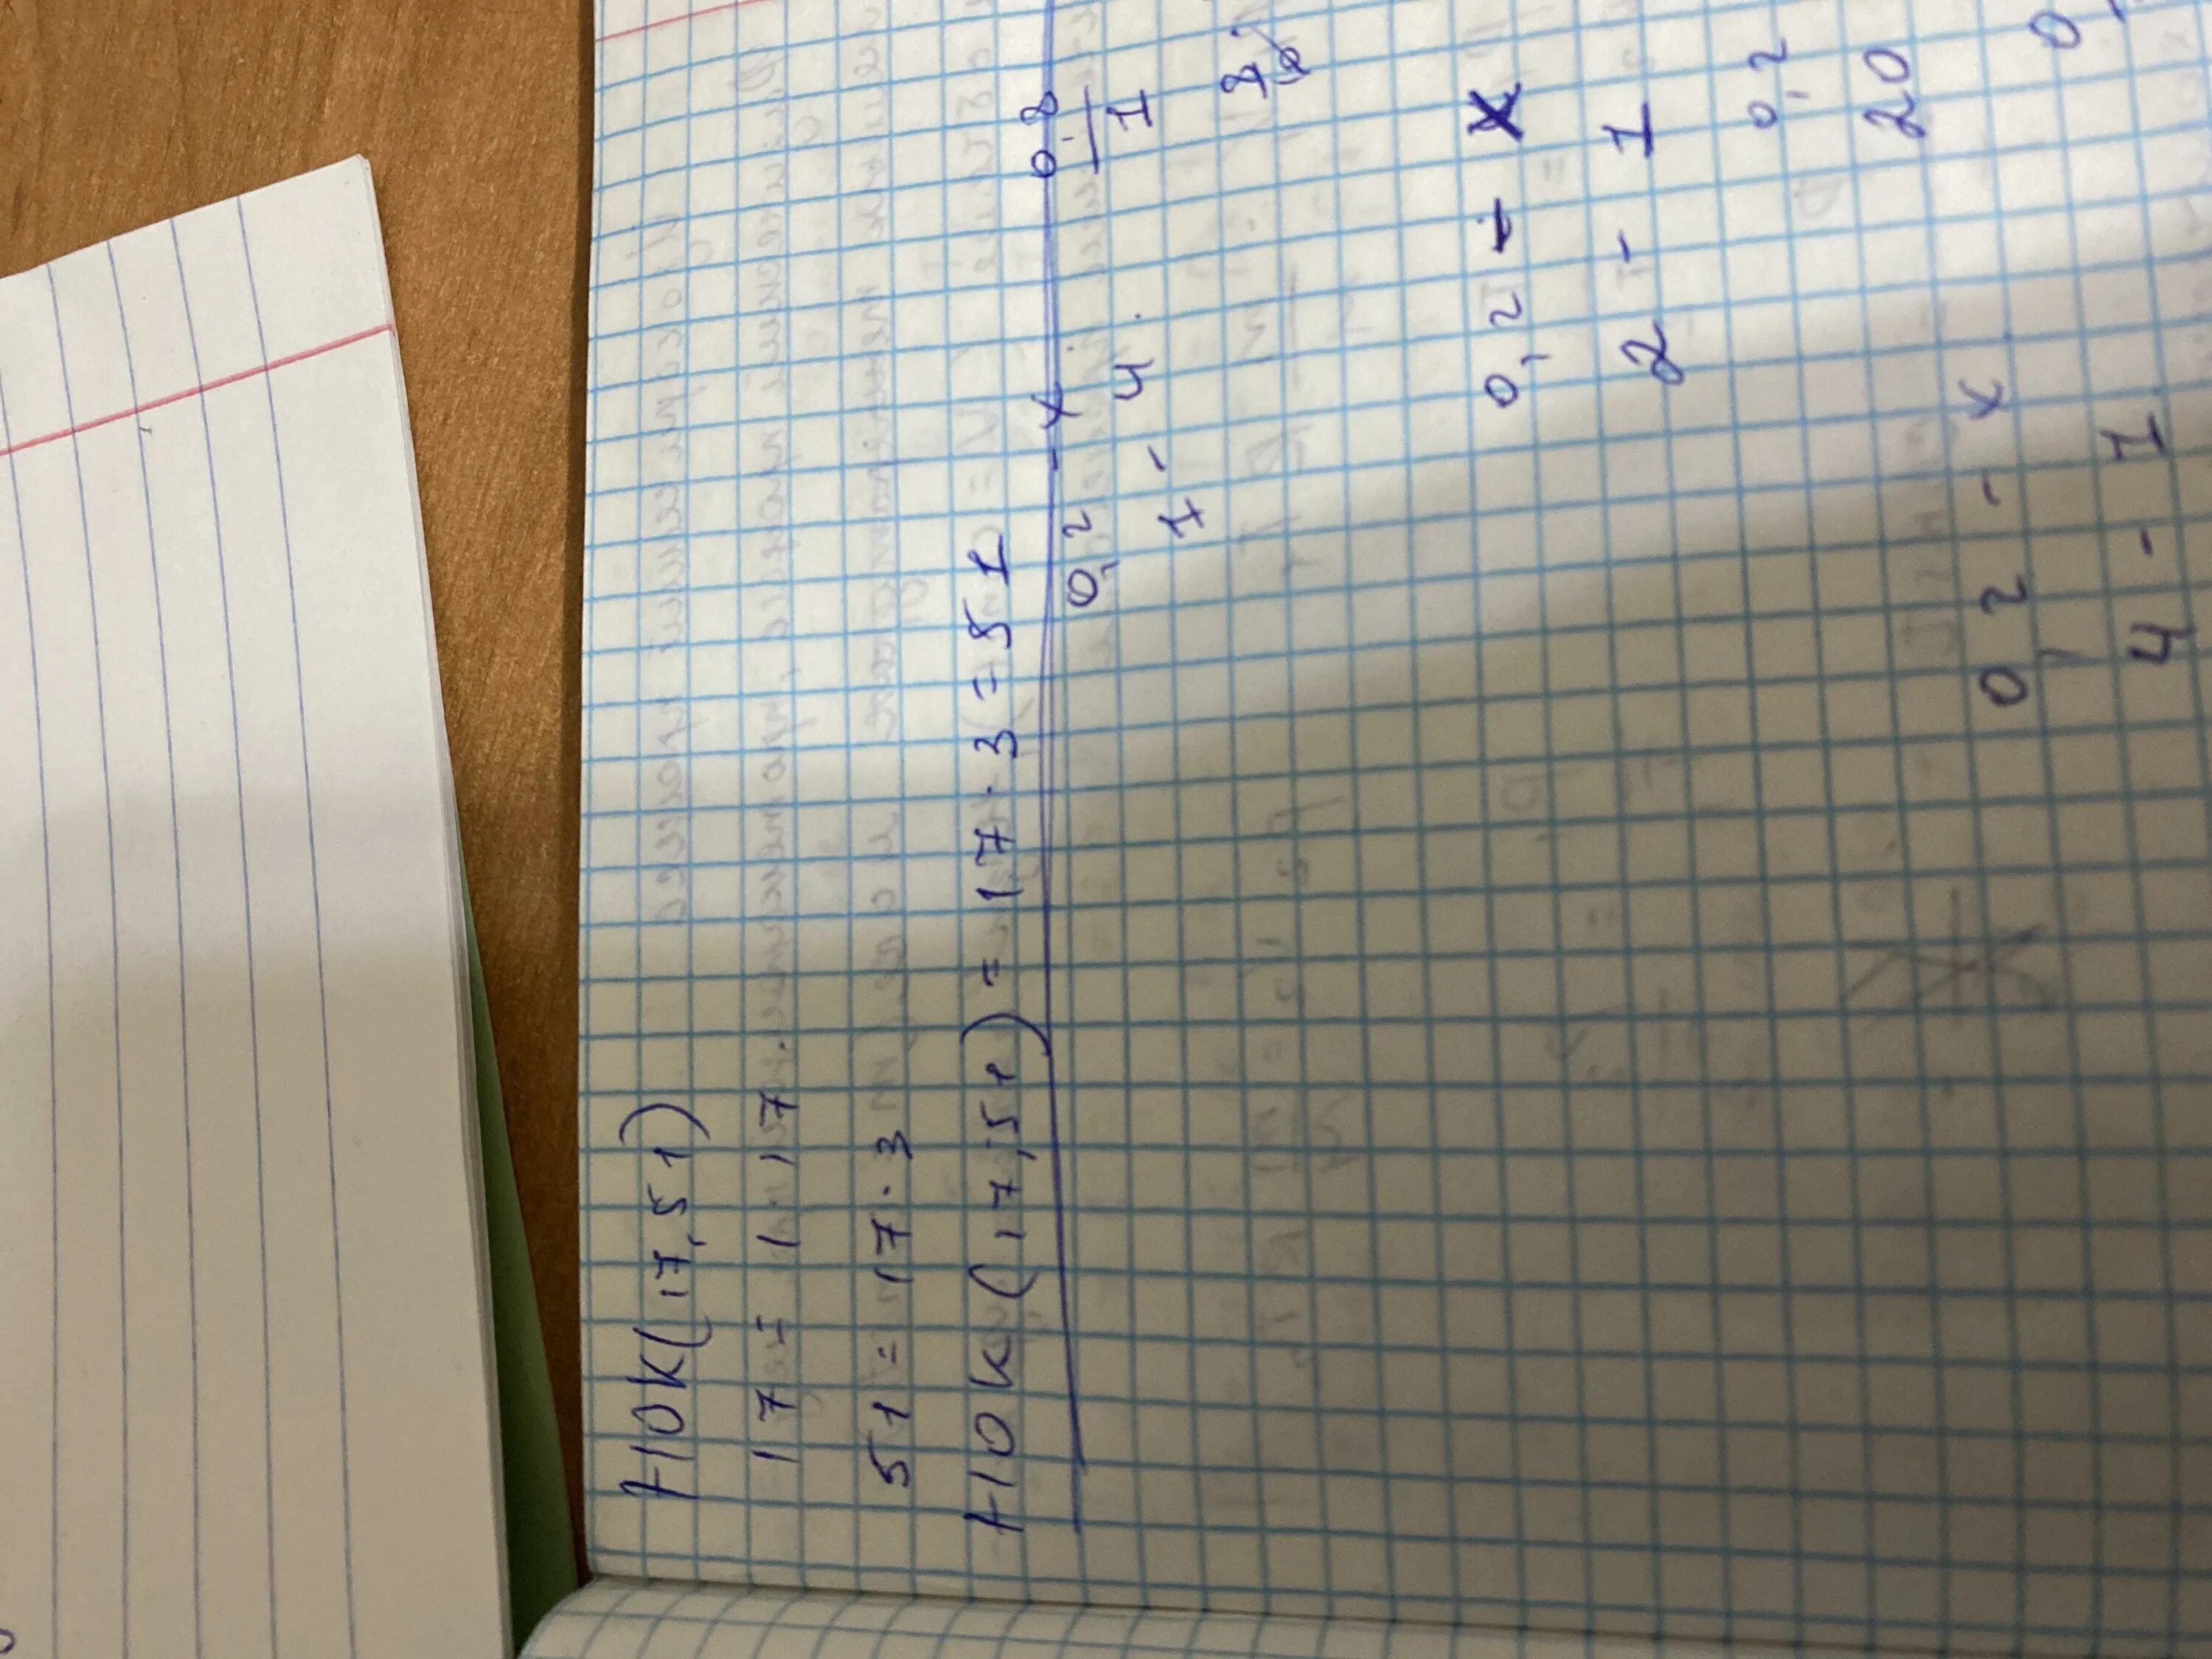 НОК(17,51)
17 = 1 · 17
51 = 17 · 3
НОК(17,51) = 17 · 3 = 51
0,2 - x 0,8
1 - 4 1
0,2 - x
2 - 1
0,2
20
0,2 - x
4 - 1